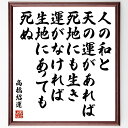 人の和と
天の運があれば
死地にも生き
運がなければ
生地にあっても
死ぬ
高橋紹運